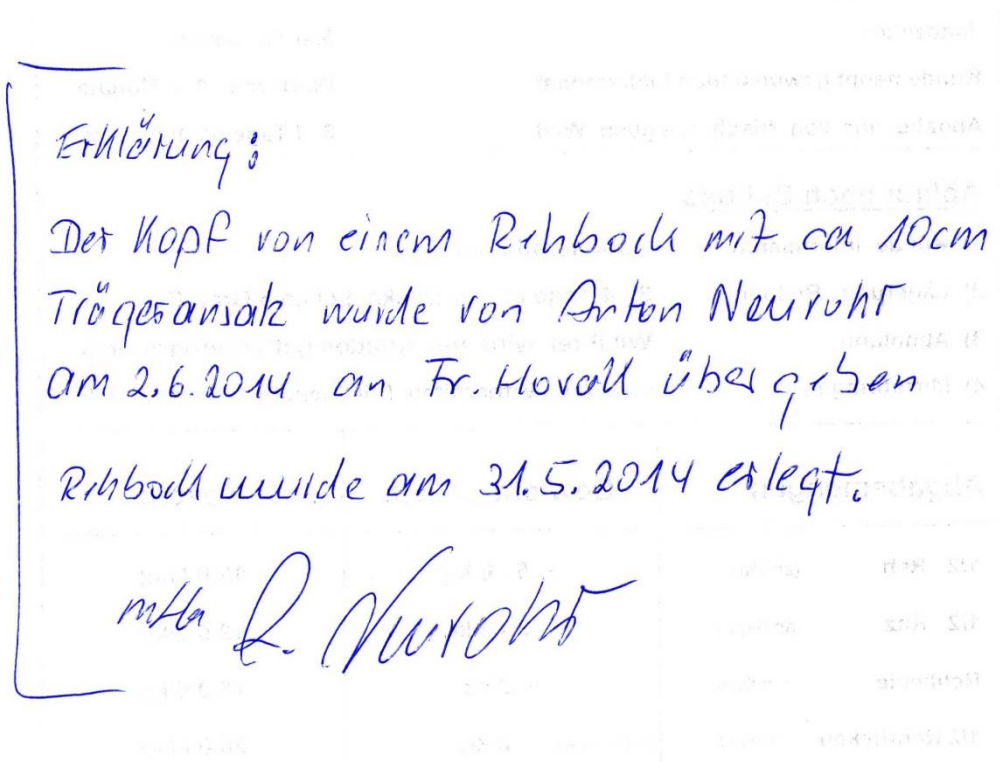 Erklärung:
Der Kopf von einem Rehbock mit ca 10cm
Trägeransatz wurde von Anton Neurohr
am 2.6.2014 an Fr. Horak übergeben
Rehbock wurde am 31.5.2014 erlegt.
mfG A. Neurohr